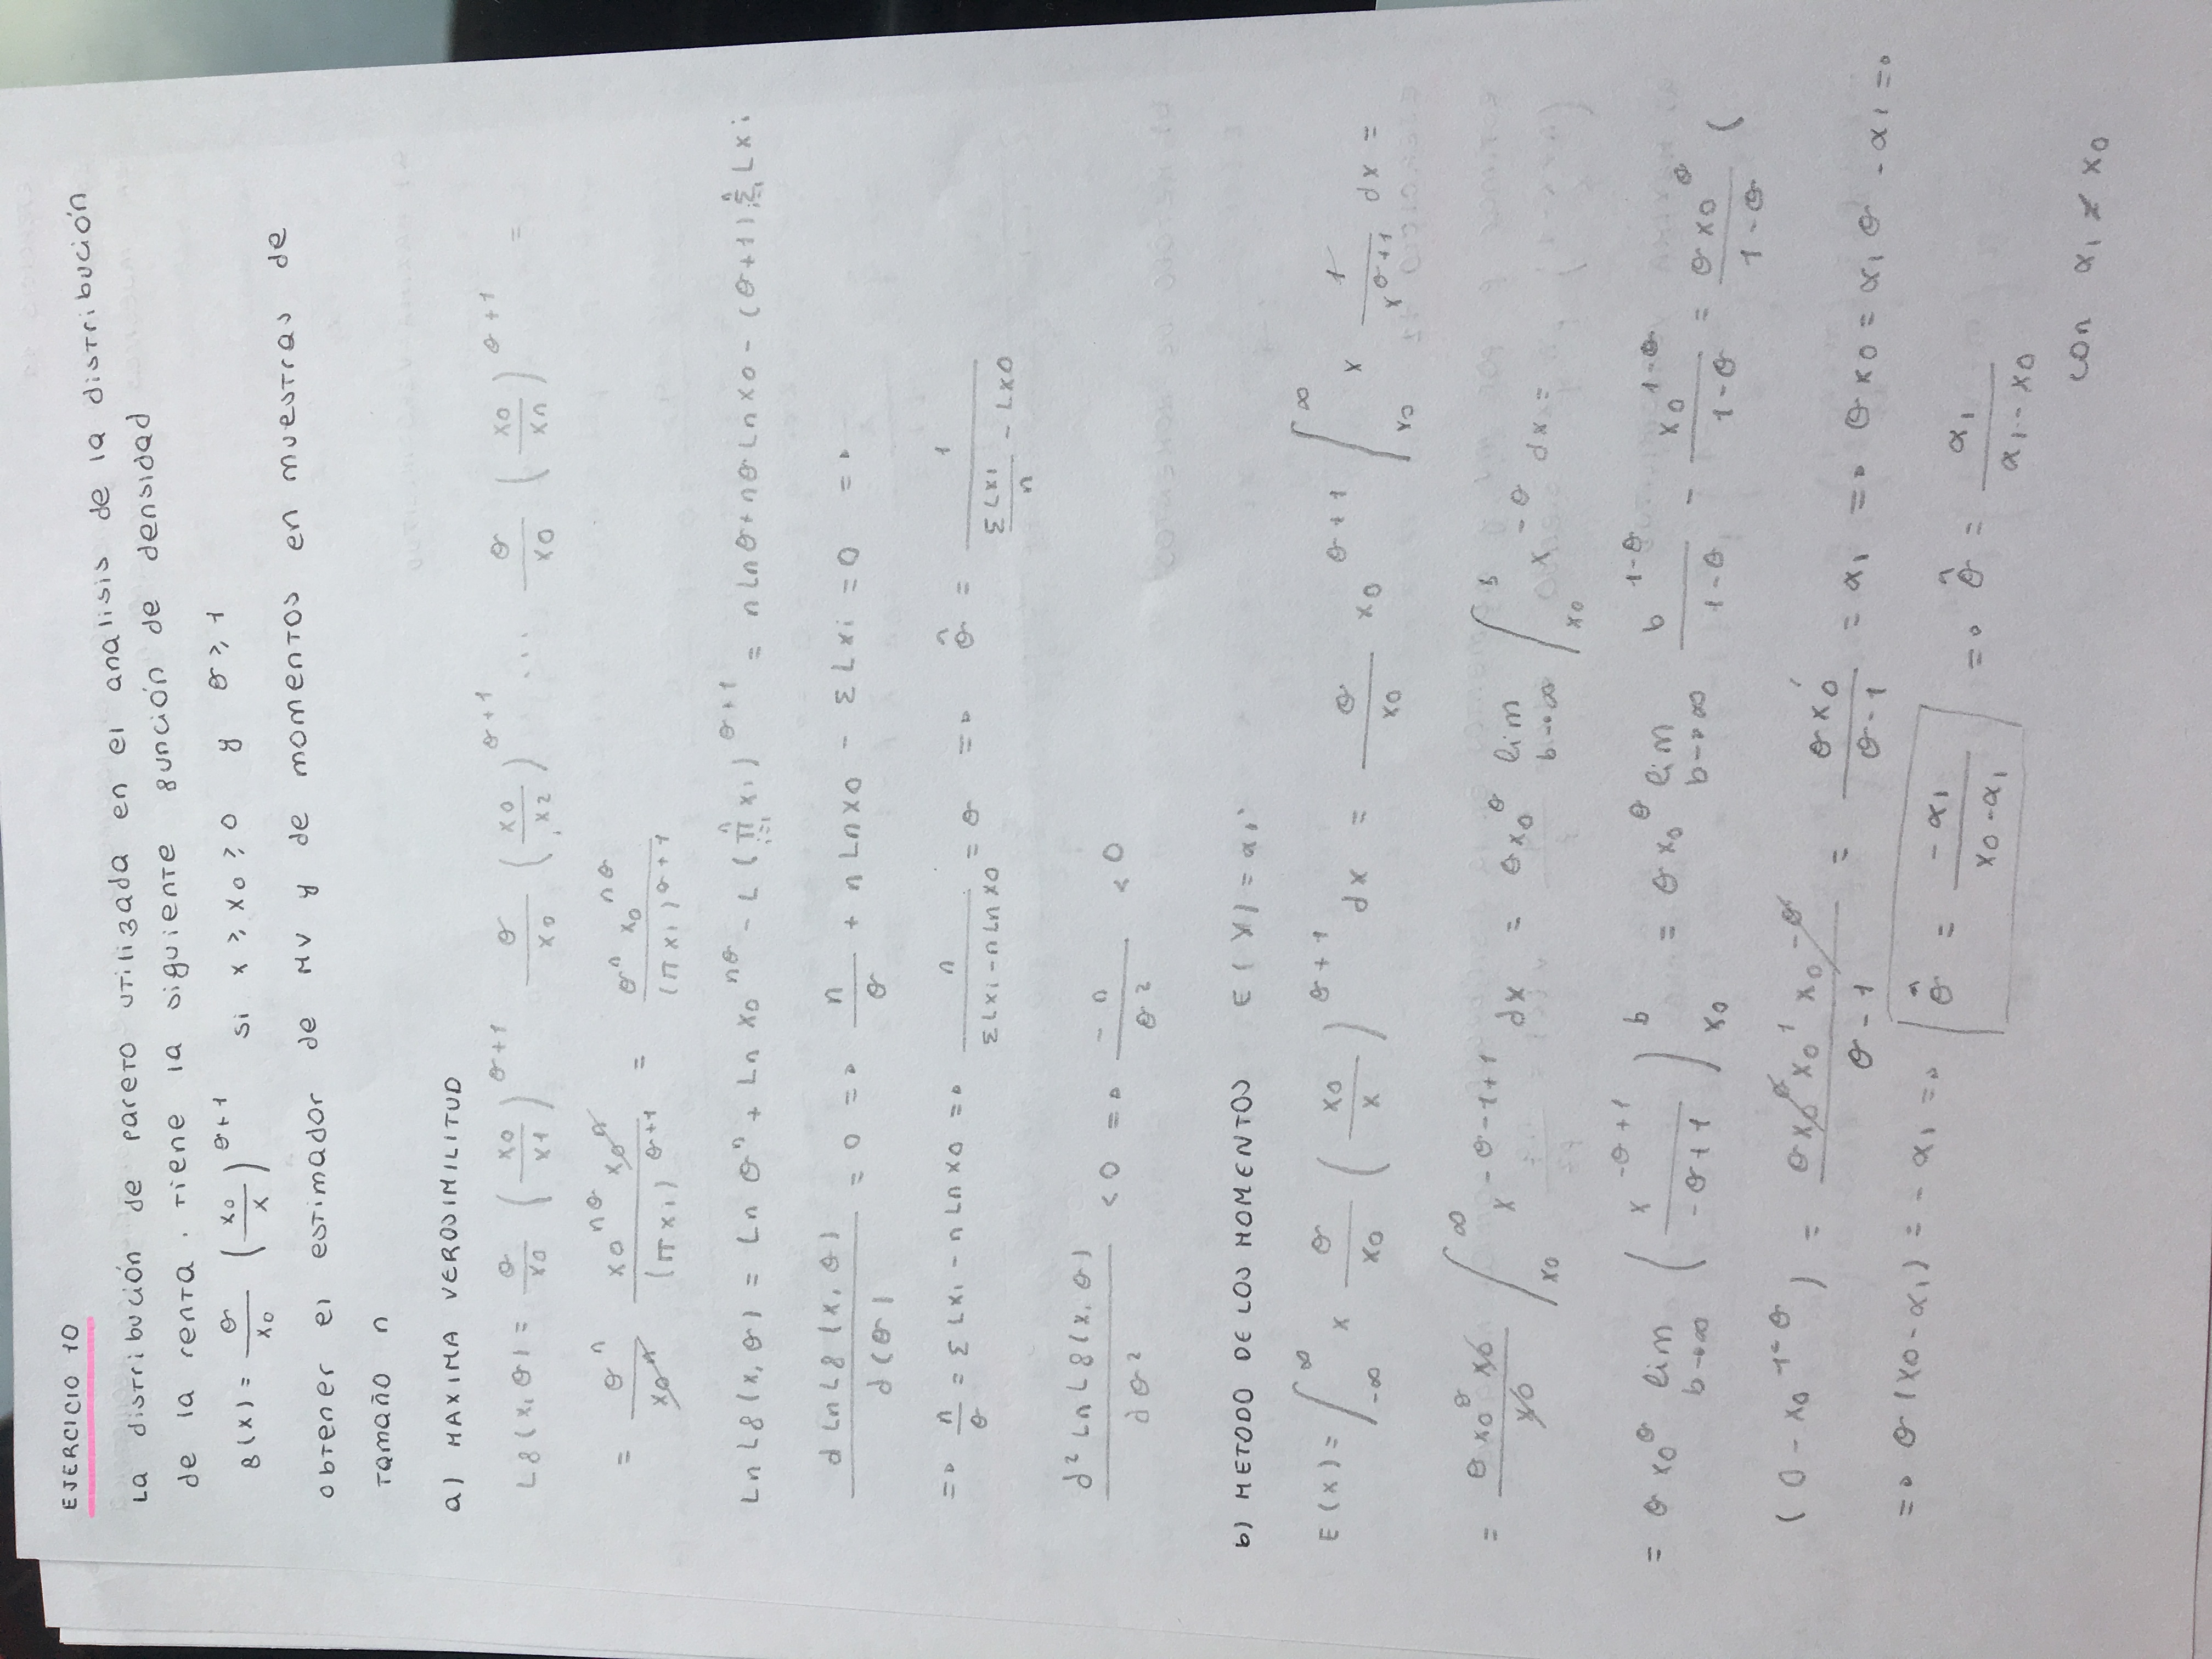 EJERCICIO 10
La distribución de Pareto utilizada en el analisis de la distribución
de la renta. Tiene la siguiente función de densidad
f(x) = θ/x0 (x0/x)^(θ+1) si x ≥ x0 ≥ 0 y θ ≥ 1
obtener el estimador de MV y de momentos en muestras de
tamaño n
a) MAXIMA VEROSIMILITUD
Lf(x, θ) = θ/x0 (x0/x1)^(θ+1) θ/x0 (x0/x2)^(θ+1) ... θ/x0 (x0/xn)^(θ+1) =
= θ^n/x0^n · x0^(nθ) x0^n/(π xi)^(θ+1) = θ^n x0^(nθ)/(π xi)^(θ+1)
Ln Lf(x, θ) = Ln θ^n + Ln x0^(nθ) - L(π_(i=1)^n xi)^(θ+1) = n Ln θ + nθ Ln x0 - (θ+1) Σ_(i=1)^n Lxi
d Ln Lf(x, θ)/d(θ) = 0 => n/θ + n Ln x0 - Σ Lxi = 0 =>
=> n/θ = Σ Lxi - n Ln x0 => n/(Σ Lxi - n Ln x0) = θ => θ̂ = 1/(Σ Lxi/n - Lx0)
d² Ln Lf(x, θ)/dθ² < 0 => -n/θ² < 0
b) METODO DE LOS MOMENTOS E(X) = α1
E(x) = ∫_(-∞)^∞ x θ/x0 (x0/x)^(θ+1) dx = θ/x0 x0^(θ+1) ∫_(x0)^∞ x 1/x^(θ+1) dx =
= θ x0^θ x0/x0 ∫_(x0)^∞ x^(-θ-1+1) dx = θ x0^θ lim_(b→∞) ∫_(x0)^b x^(-θ) dx =
= θ x0^θ lim_(b→∞) (x^(-θ+1)/(-θ+1))_(x0)^b = θ x0^θ lim_(b→∞) b^(1-θ)/(1-θ) - x0^(1-θ)/(1-θ) = θ x0^θ/(1-θ) (
(0 - x0^(1-θ)) = θ x0^θ x0^1 x0^(-θ)/(θ-1) = θ x0/(θ-1) = α1 => θ x0 = α1 θ - α1 =>
=> θ(x0 - α1) = -α1 => θ̂ = -α1/(x0 - α1) => θ̂ = α1/(α1 - x0)
con α1 ≠ x0